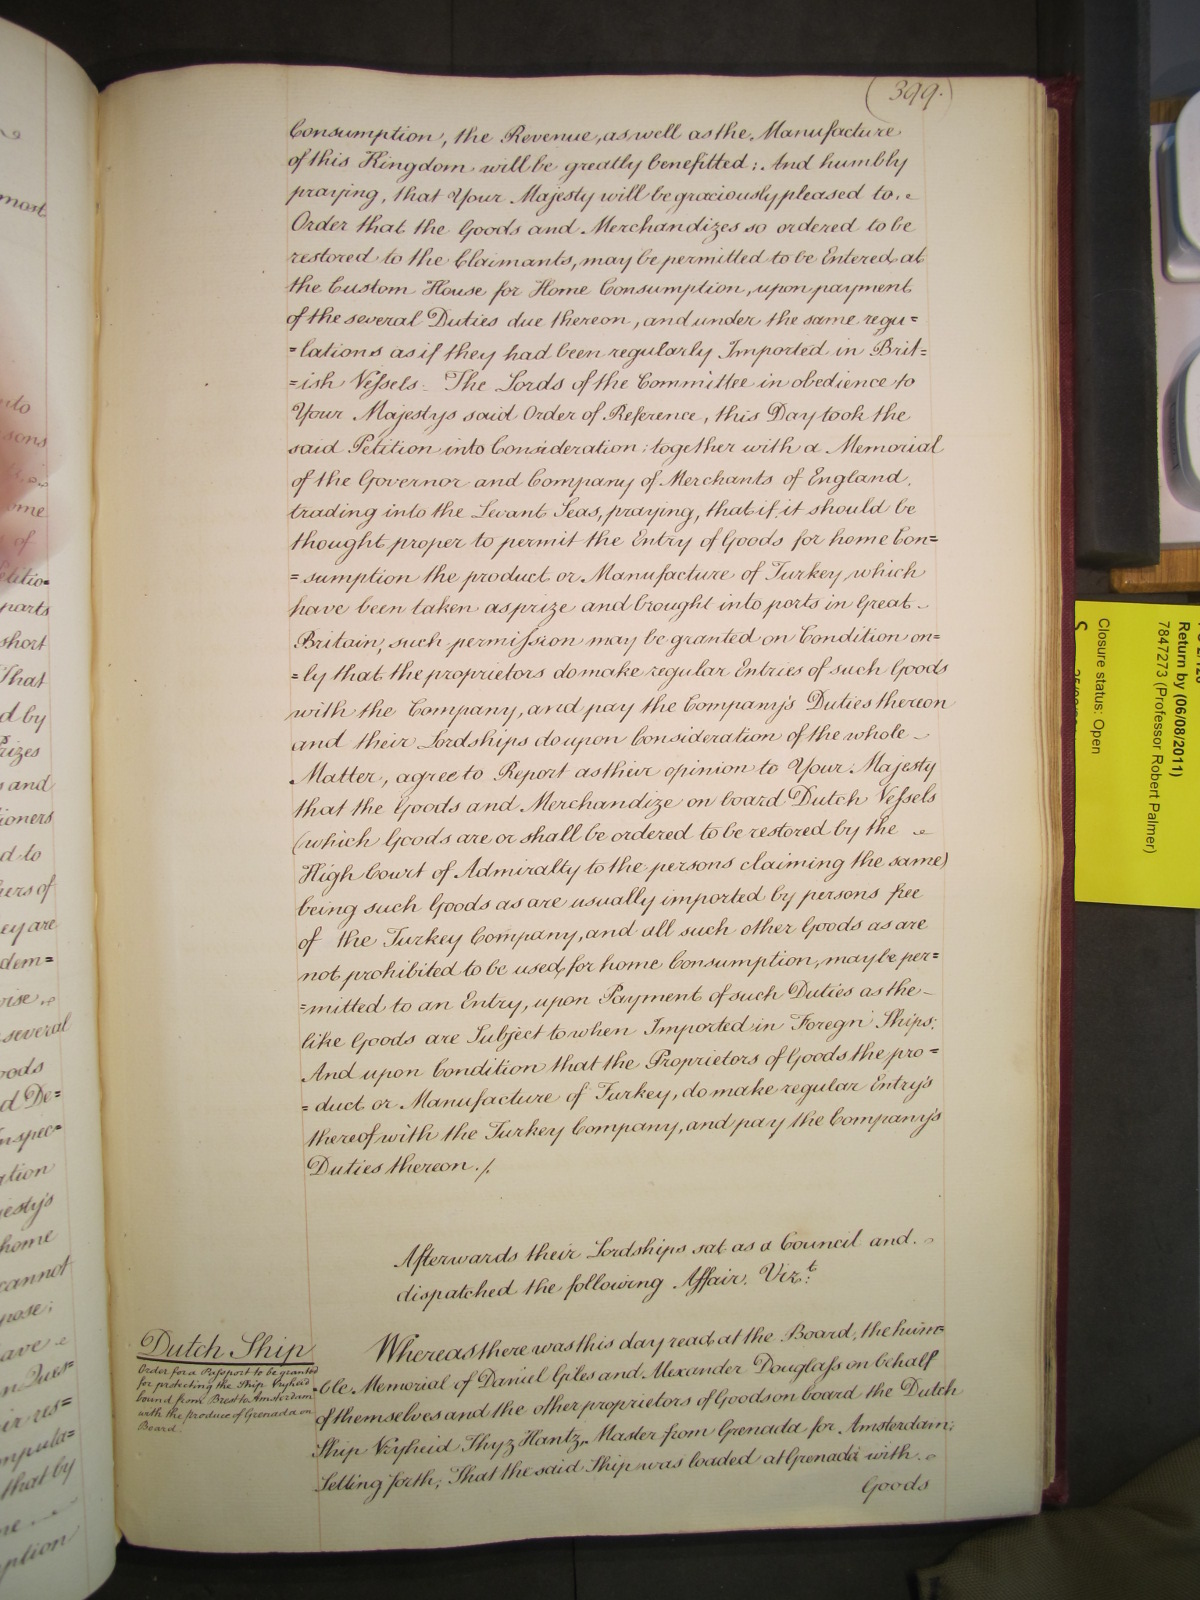 (399.)
Consumption, the Revenue, as well as the Manufacture
of this Kingdom will be greatly benefitted: And humbly
praying, that Your Majesty will be graciously pleased to
Order that the Goods and Merchandizes so ordered to be
restored to the Claimants, may be permitted to be Entered at
the Custom House for Home Consumption, upon payment
of the several Duties due thereon, and under the same regu=
=lations as if they had been regularly Imported in Brit=
=ish Vessels. The Lords of the Committee in obedience to
Your Majestys said Order of Reference, this Day took the
said Petition into Consideration; together with a Memorial
of the Governor and Company of Merchants of England
trading into the Levant Seas, praying, that if it should be
thought proper to permit the Entry of Goods for home Con=
=sumption the product or Manufacture of Turkey which
have been taken as prize and brought into ports in Great
Britain, such permission may be granted on Condition on=
=ly that the proprietors do make regular Entries of such Goods
with the Company, and pay the Company's Duties thereon
and their Lordships do upon Consideration of the whole
Matter, agree to Report as their opinion to Your Majesty
that the Goods and Merchandize on board Dutch Vessels
(which Goods are or shall be ordered to be restored by the
High Court of Admiralty to the persons claiming the same)
being such Goods as are usually imported by persons free
of the Turkey Company, and all such other Goods as are
not prohibited to be used for home Consumption, may be per=
=mitted to an Entry, upon Payment of such Duties as the
like Goods are Subject to when Imported in Foregn Ships;
And upon Condition that the Proprietors of Goods the pro=
=duct or Manufacture of Turkey, do make regular Entry's
thereof with the Turkey Company, and pay the Company's
Duties thereon ./.
Afterwards their Lordships sat as a Council and
dispatched the following Affair. Vizt:
Dutch Ship
Order for a Passport to be granted
for protecting the Ship Vryheid
bound from Brest to Amsterdam
with the produce of Grenada on
Board.
Whereas there was this day read at the Board, the hum=
=ble Memorial of Daniel Giles and Alexander Douglass on behalf
of themselves and the other proprietors of Goods on board the Dutch
Ship Vryheid Thyz Hantz, Master from Grenada for Amsterdam;
Setting forth; That the said Ship was loaded at Grenada with
Goods
most
nto
sons
ome
of
etitio=
parts
short
That
d by
rizes
s and
ioners
d to
hers of
ey are
dem=
wise
several
oods
d De=
nspec=
ation
jesty's
home
cannot
pose;
ave
ir res=
mpula=
that by
ption
Return by (06/08/2011)
7847273 (Professor Robert Palmer)
Closure status: Open